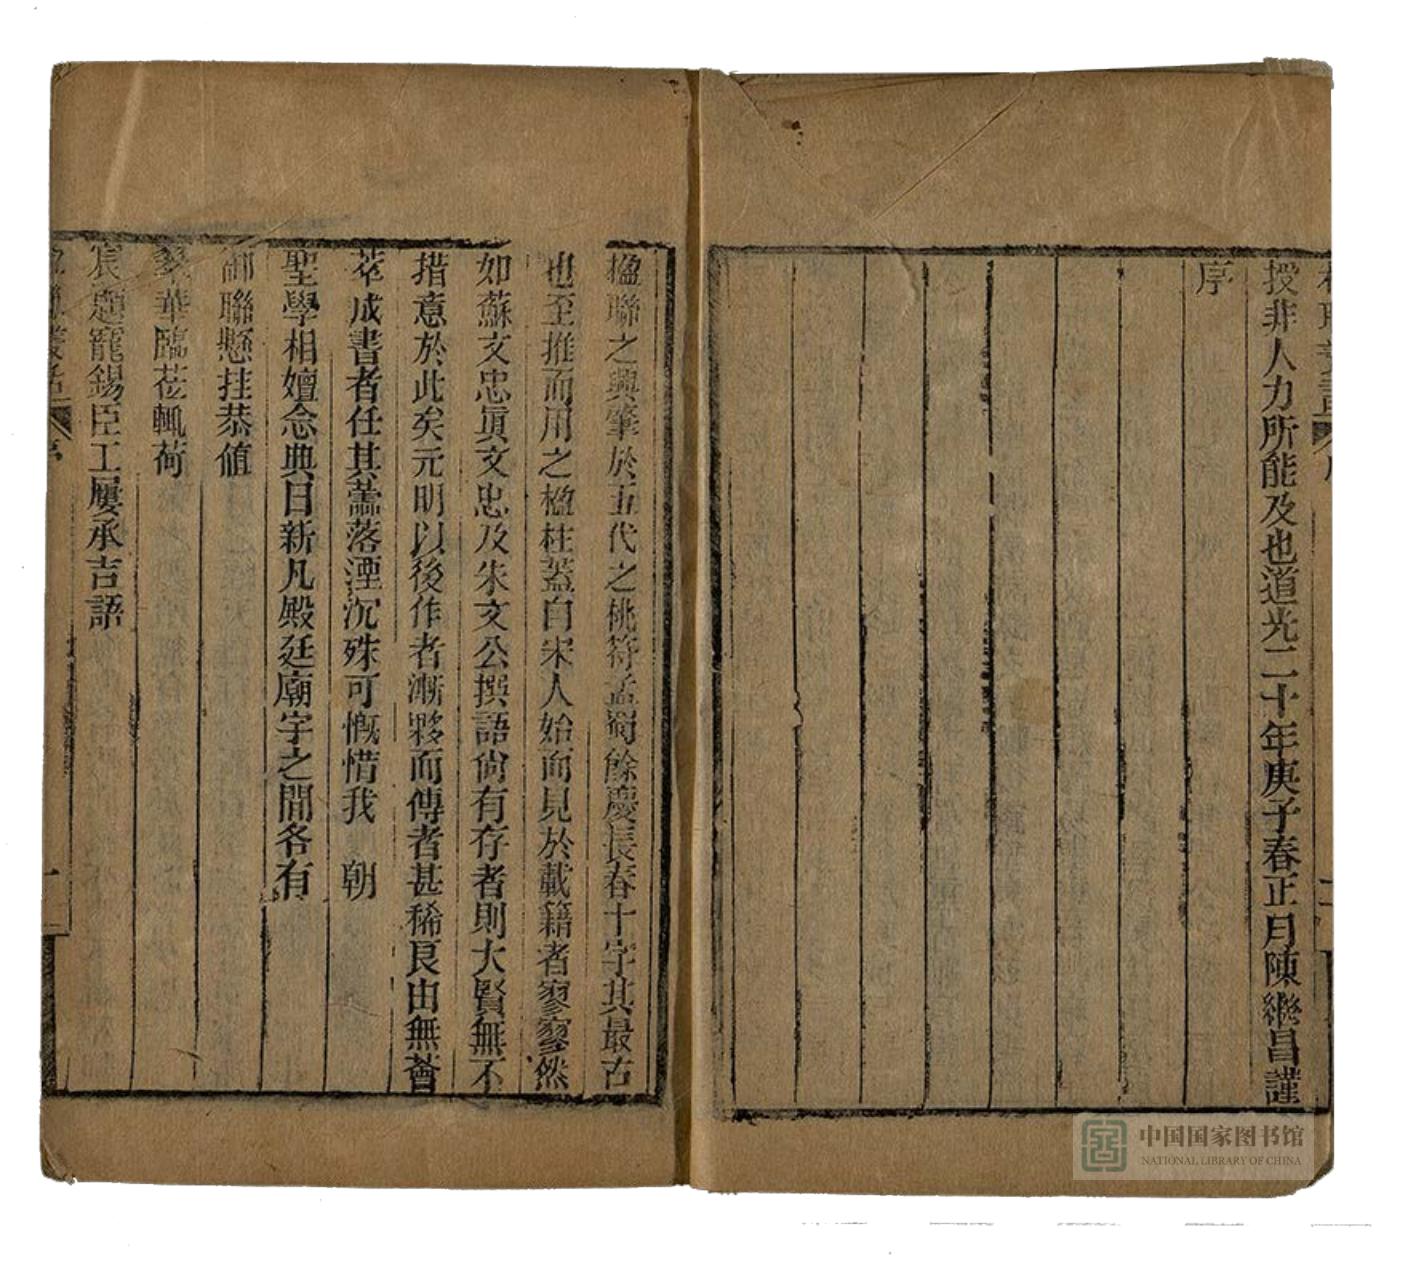 授非人力所能及也道光二十年庚子春正月陳繼昌謹
序
楹聯之興肇於五代之桃符孟蜀餘慶長春十字其最古
也至推而用之楹柱蓋自宋人始而見於載籍者寥寥然
如蘇文忠眞文忠及朱文公撰語尙有存者則大賢無不
措意於此矣元明以後作者漸夥而傳者甚稀良由無薈
萃成書者任其零落湮沉殊可慨惜我 朝
聖學相嬗念典日新凡殿廷廟宇之間各有
御聯懸挂恭值
翠華臨莅輒荷
宸題寵錫臣工屢承吉語
楹聯叢話 序 一
中国国家图书馆
NATIONAL LIBRARY OF CHINA